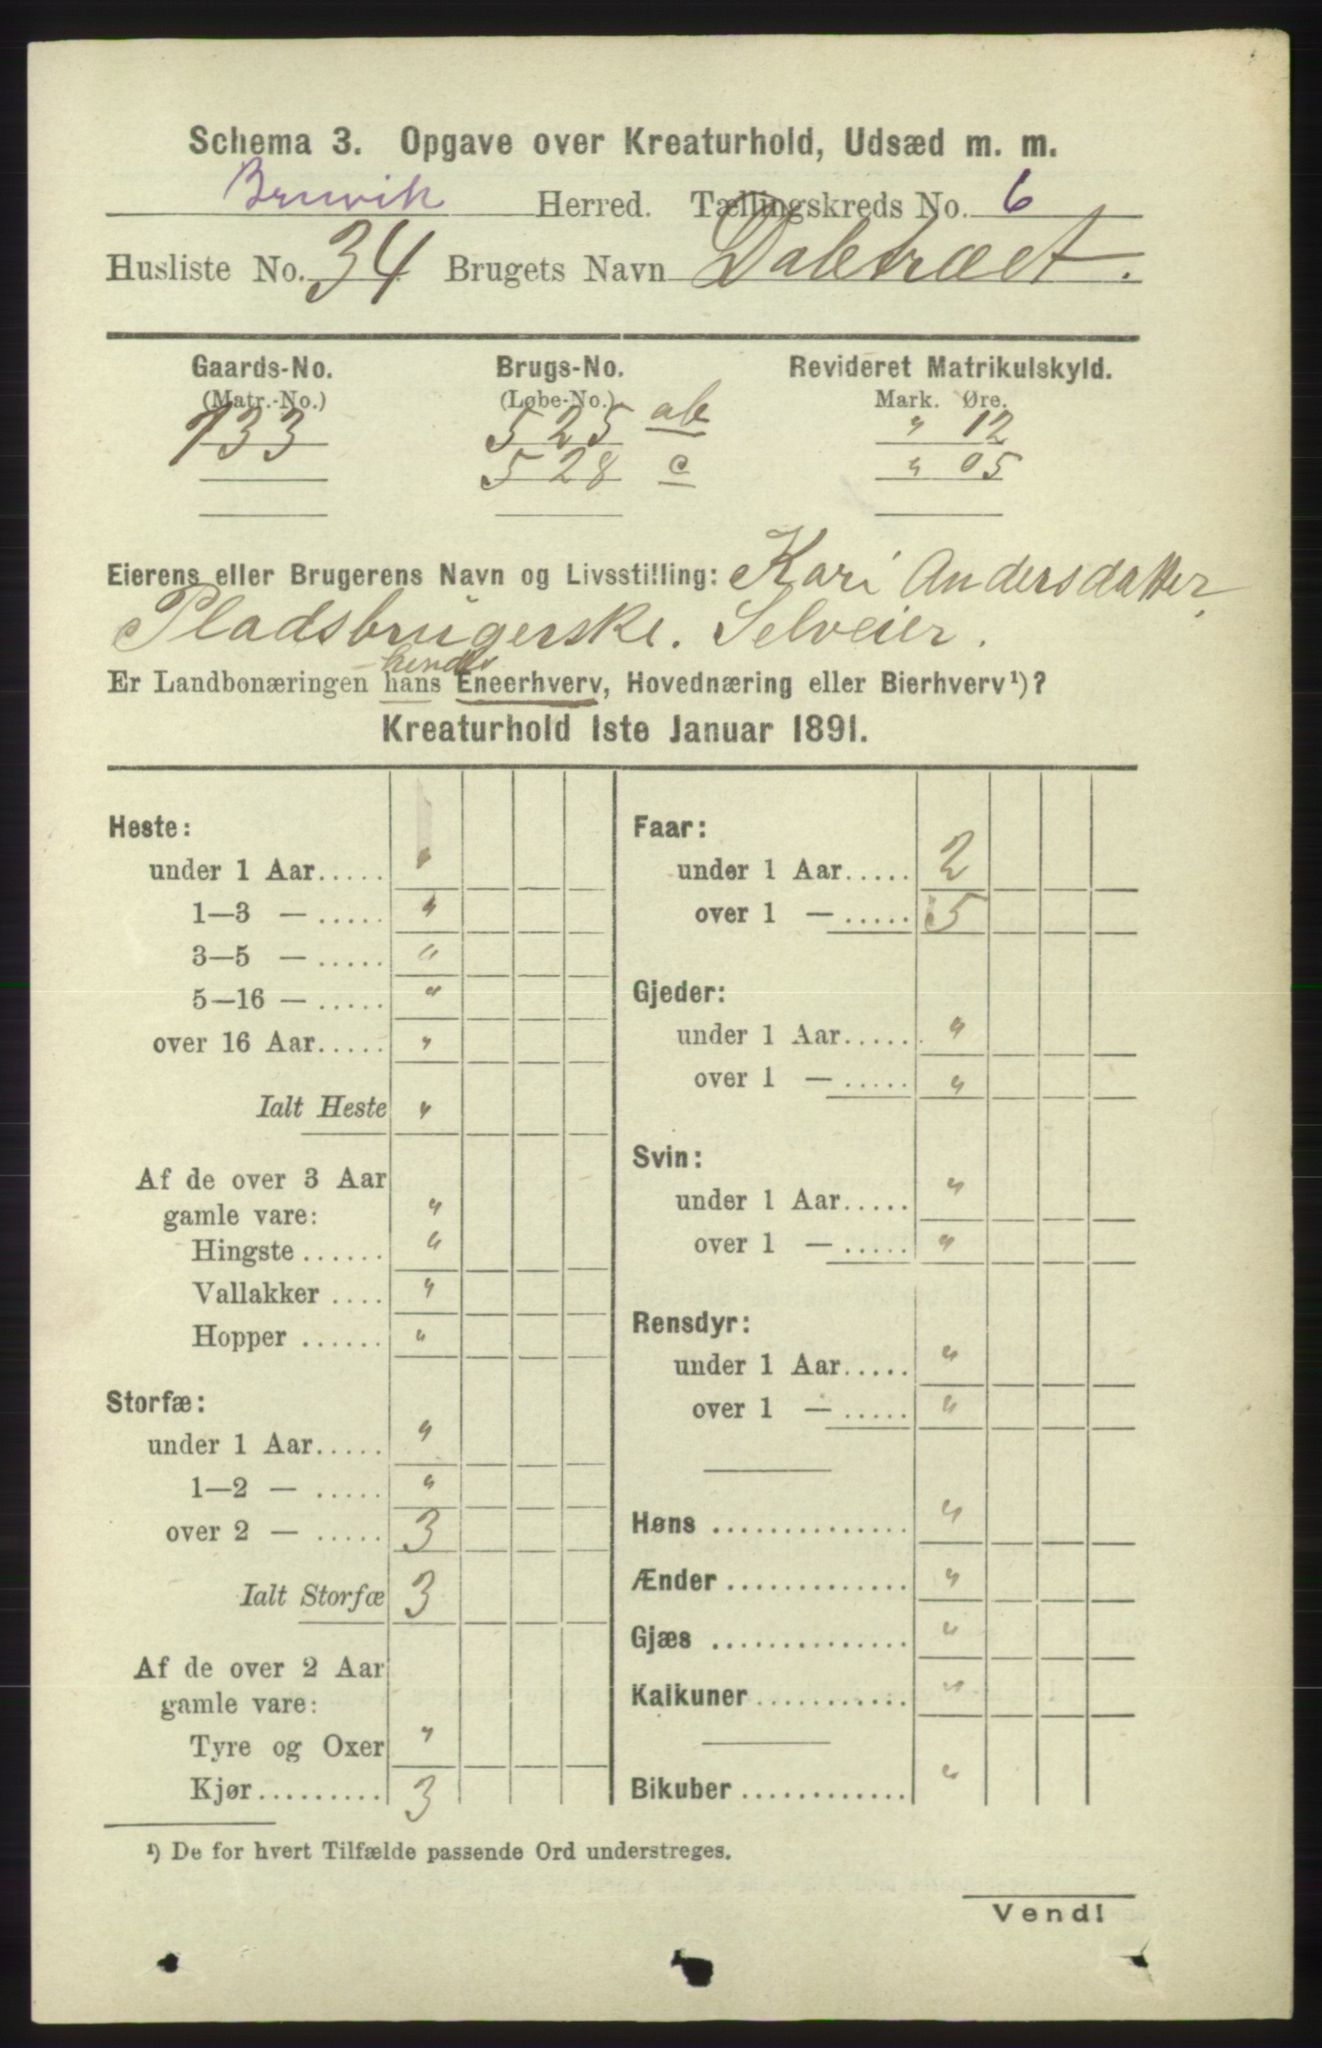 Schema 3. Opgave over Kreaturhold, Udsæd m. m.
Bruvik Herred. Tællingskreds No. 6
Husliste No. 34 Brugets Navn Daletræet.
Gaards-No. Brugs-No. Revideret Matrikulskyld.
(Matr.-No.) (Løbe-No.) Mark. Øre.
133 525 ab " 12
528 c " 05
Eierens eller Brugerens Navn og Livsstilling: Kari Andersdatter,
Pladsbrugerske. Selveier.
hendes
Er Landbonæringen hans Eneerhverv, Hovednæring eller Bierhverv¹)?
Kreaturhold 1ste Januar 1891.
Heste:
under 1 Aar..... "
1—3 — ..... "
3—5 — ..... "
5—16 — ..... "
over 16 Aar..... "
Ialt Heste "
Af de over 3 Aar
gamle vare: "
Hingste ...... "
Vallakker .... "
Hopper ...... "
Storfæ:
under 1 Aar..... "
1—2 — ..... "
over 2 — ..... 3
Ialt Storfæ 3
Af de over 2 Aar
gamle vare:
Tyre og Oxer "
Kjør......... 3
Faar:
under 1 Aar..... 2
over 1 — ..... 5
Gjeder:
under 1 Aar..... "
over 1 — ..... "
Svin:
under 1 Aar..... "
over 1 — ..... "
Rensdyr:
under 1 Aar..... "
over 1 — ..... "
Høns .............. "
Ænder ............. "
Gjæs .............. "
Kalkuner........... "
Bikuber ............ "
¹) De for hvert Tilfælde passende Ord understreges.
Vend!